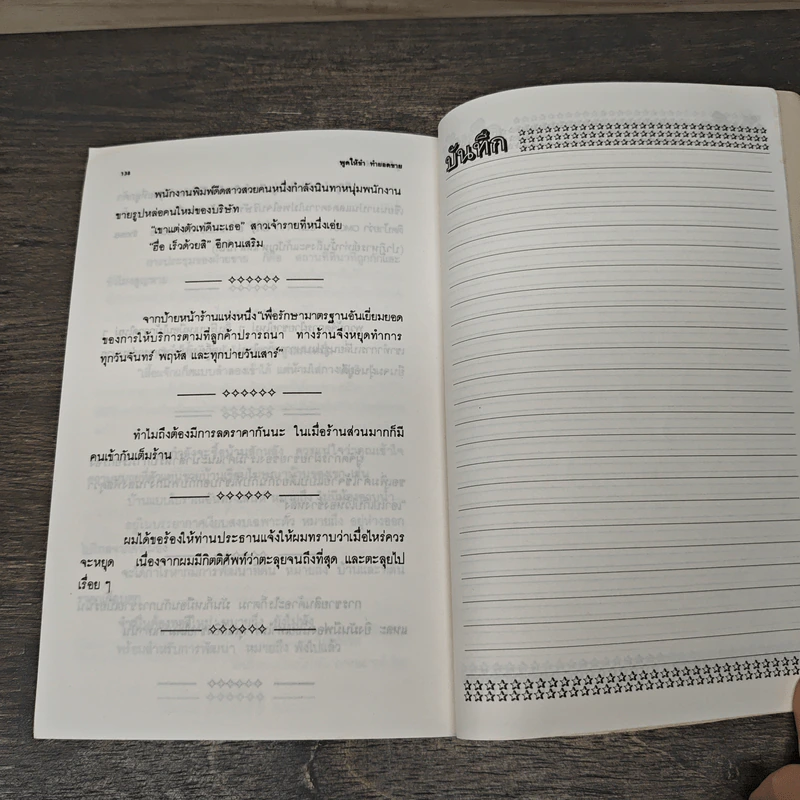 138
พูดให้ขำ ทำยอดขาย
พนักงานพิมพ์ดีดสาวสวยคนหนึ่งกำลังนินทาหนุ่มพนักงาน
ขายรูปหล่อคนใหม่ของบริษัท
"เขาแต่งตัวเท่ดีนะเธอ" สาวเจ้ารายที่หนึ่งเอ่ย
"ฮื่อ เร็วด้วยสิ" อีกคนเสริม
จากป้ายหน้าร้านแห่งหนึ่ง"เพื่อรักษามาตรฐานอันเยี่ยมยอด
ของการให้บริการตามที่ลูกค้าปรารถนา ทางร้านจึงหยุดทำการ
ทุกวันจันทร์ พฤหัส และทุกบ่ายวันเสาร์"
ทำไมถึงต้องมีการลดราคากันนะ ในเมื่อร้านส่วนมากก็มี
คนเข้ากันเต็มร้าน
ผมได้ขอร้องให้ท่านประธานแจ้งให้ผมทราบว่าเมื่อไหร่ควร
จะหยุด เนื่องจากผมมีกิตติศัพท์ว่าตะลุยจนถึงที่สุด และตะลุยไป
เรื่อย ๆ
บันทึก